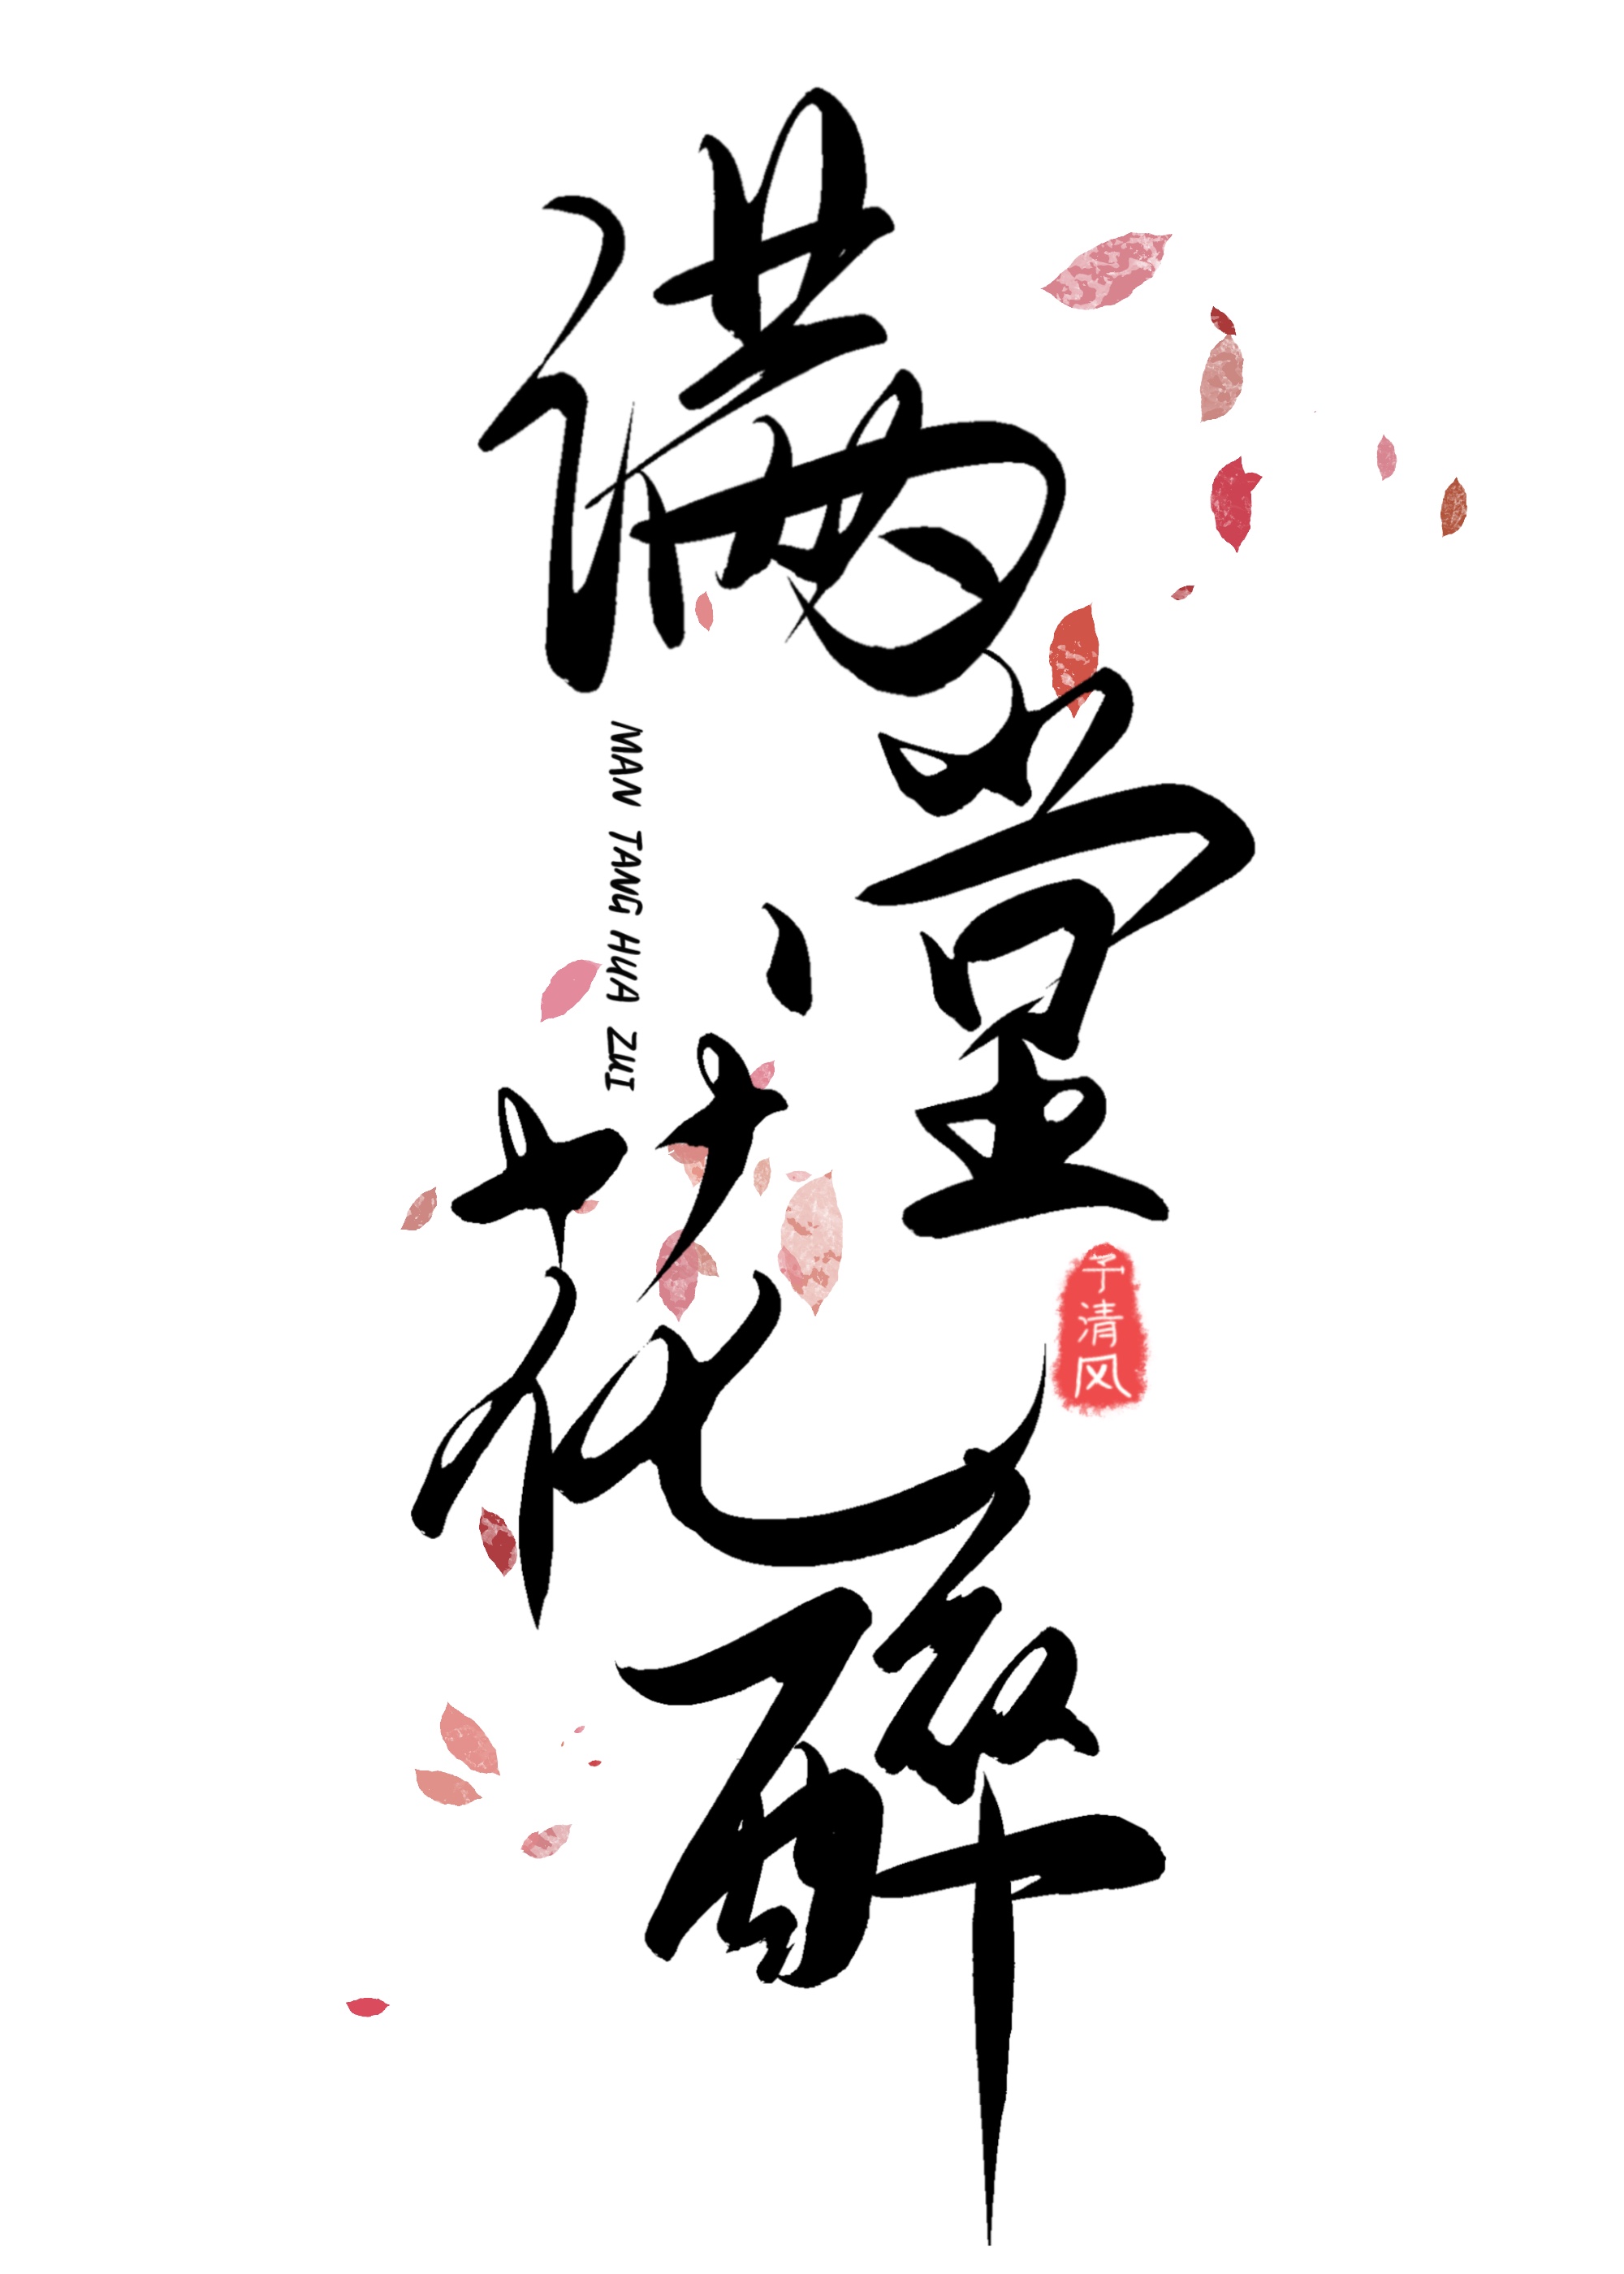 满堂花醉
MAN TANG HUA ZUI
予清风